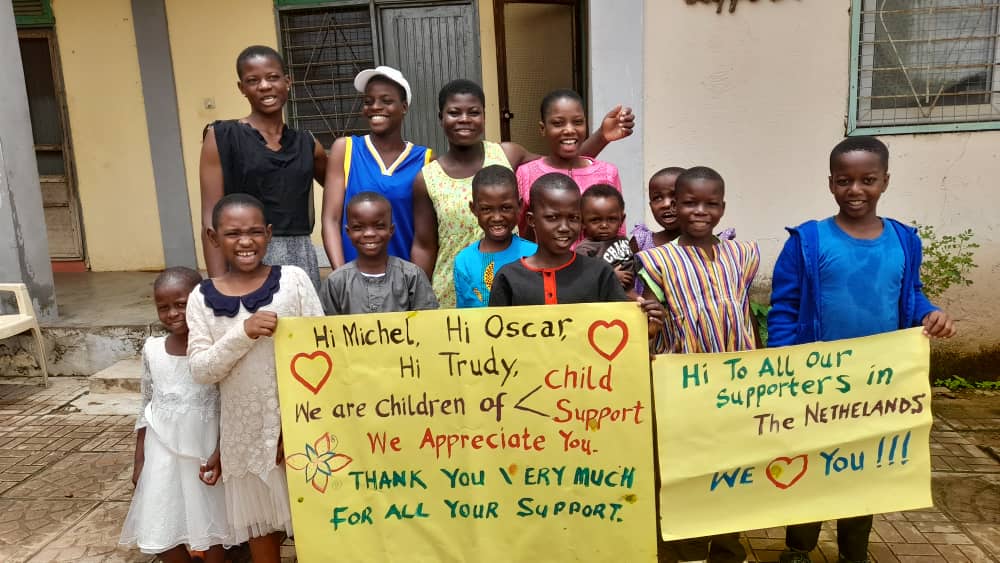 Hi Michel, Hi Oscar,
Hi Trudy,
We are Children of < Child
Support
We Appreciate You.
THANK YOU VERY MUCH
FOR ALL YOUR SUPPORT.
Hi To All Our
Supporters in
The NETHELANDS
WE ♡ You !!!